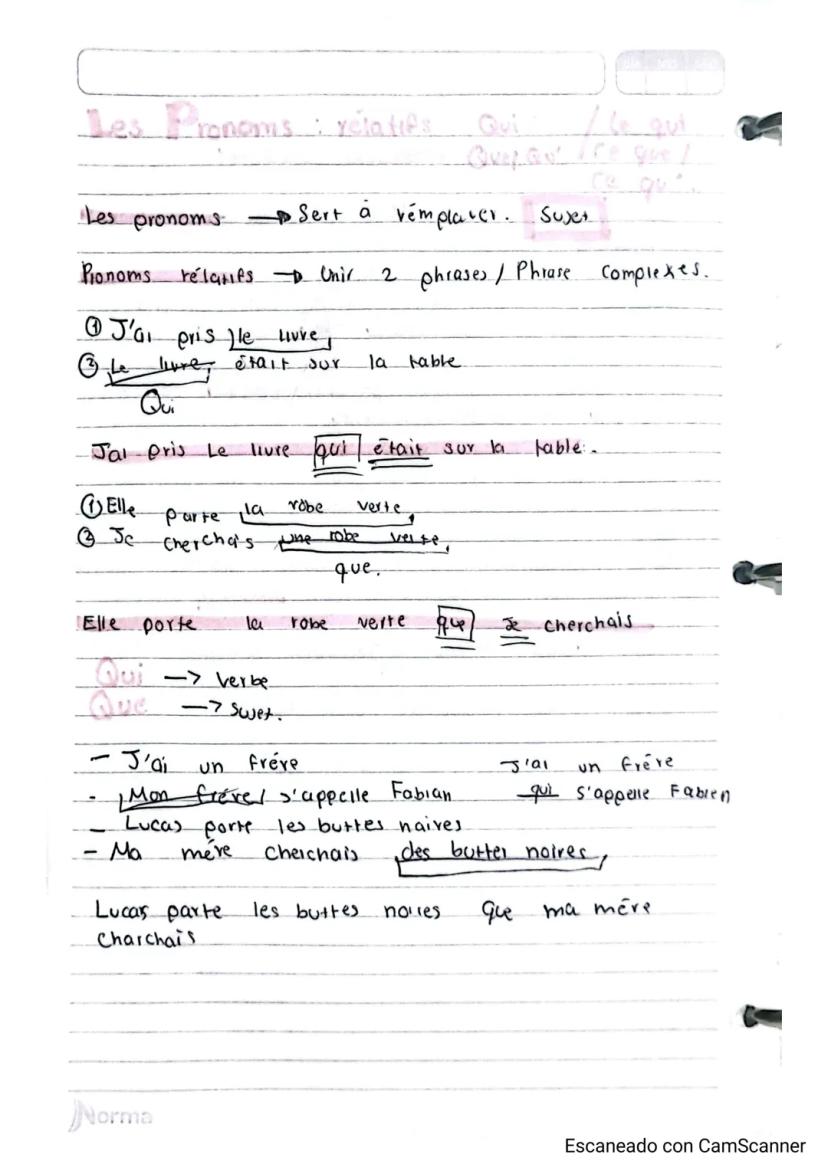 Les Pronoms : rélatifs Qui / Ce qui
Que/Qu' / Ce que /
Ce qu'.
Les pronoms → Sert à rémplacer. Sujet
Pronoms rélatifs → Unir 2 phrases / Phrase complexes.
① J'ai pris le livre
② Le livre était sur la table
Qui
J'ai pris Le livre qui était sur la table.
① Elle porte la robe verte
② Je cherchais une robe verte
que.
Elle porte la robe verte que Je cherchais
Qui → Verbe
Que → Sujet.
- J'ai un frére J'ai un frére
- Mon frére s'appelle Fabian qui s'appelle Fabien
- Lucas porte les buttes naires
- Ma mére cherchais des buttes noires
Lucas parte les buttes noires que ma mére
charchais
Norma
Escaneado con CamScanner